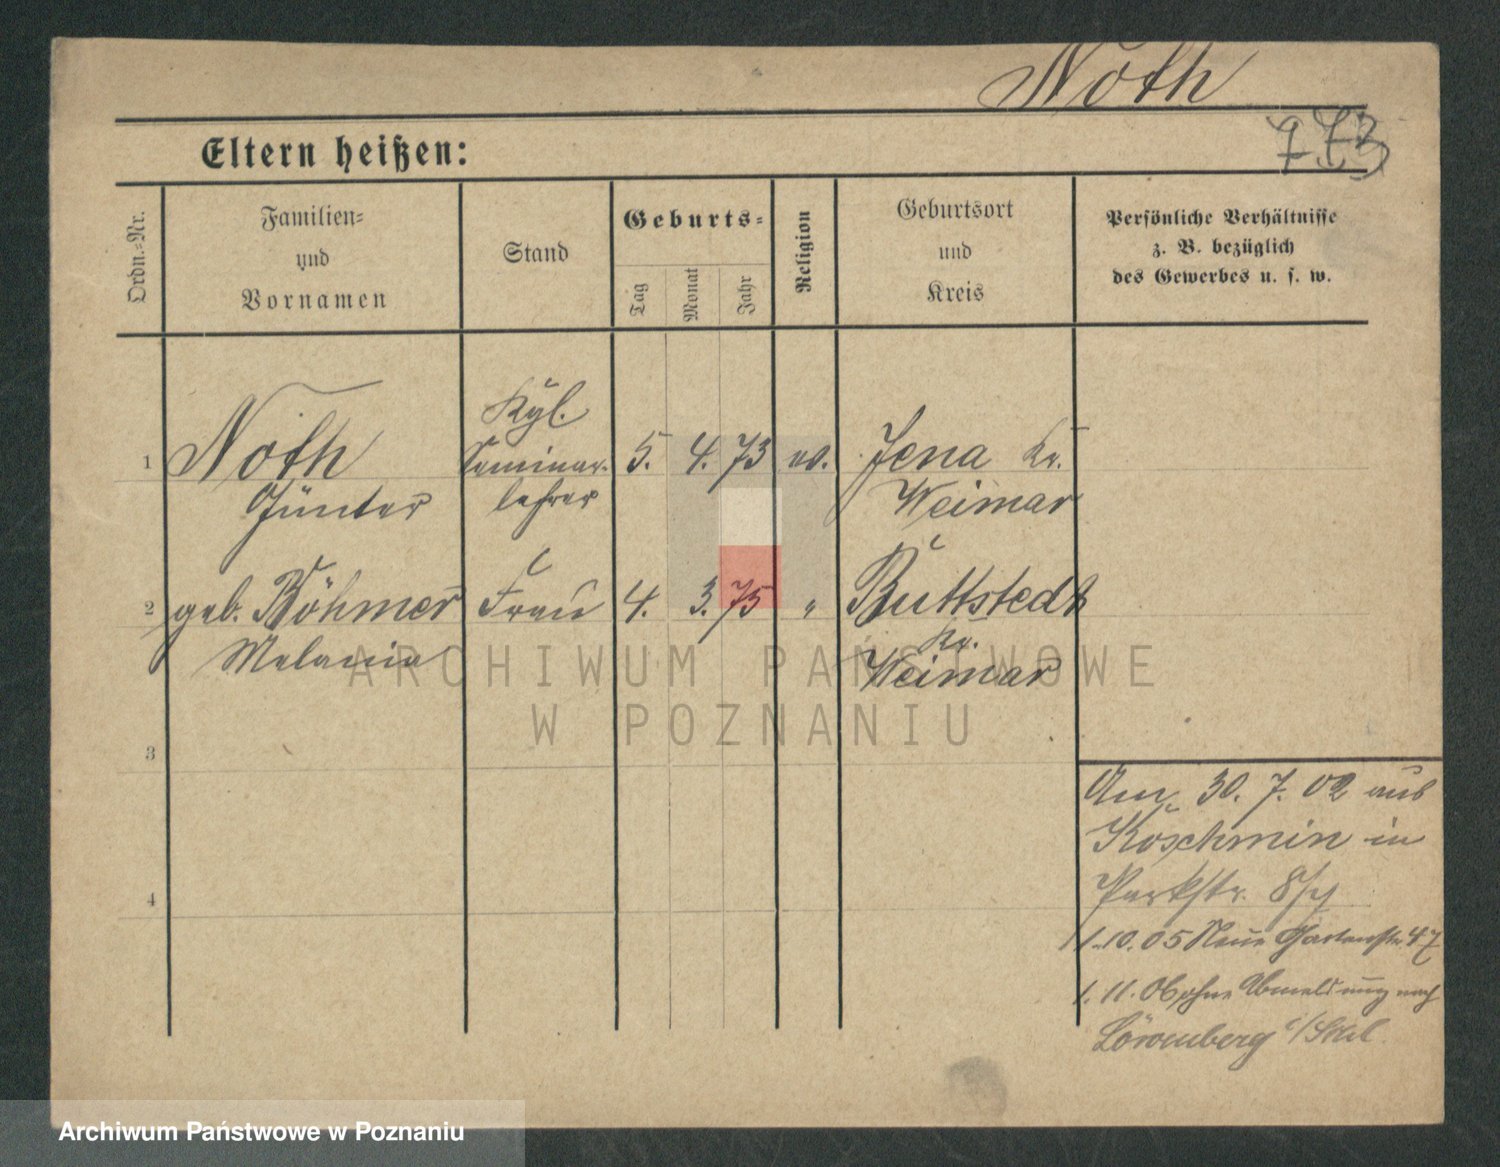 Noth
773
Eltern heißen:
Ordn.-Nr.
Familien-
und
Vornamen
Stand
Geburts-
Tag
Monat
Jahr
Religion
Geburtsort
und
Kreis
Persönliche Verhältnisse
z. B. bezüglich
des Gewerbes u. s. w.
Kgl.
1 Noth Seminar- 5. 4. 73 ev. Jena Kr.
Günter lehrer Weimar
2 geb. Böhmer Frau 4. 3. 75 " Buttstedt
Kr.
Melanie Weimar
ARCHIWUM PAŃSTWOWE
W POZNANIU
3
4
Am 30. 7. 02 aus
Koschmin in
Parkstr. 8/
1.10.05 Neue Gartenstr. 47
1. 11. 06 ohne Abmeldung nach
Löwenberg i/Schl.
Archiwum Państwowe w Poznaniu